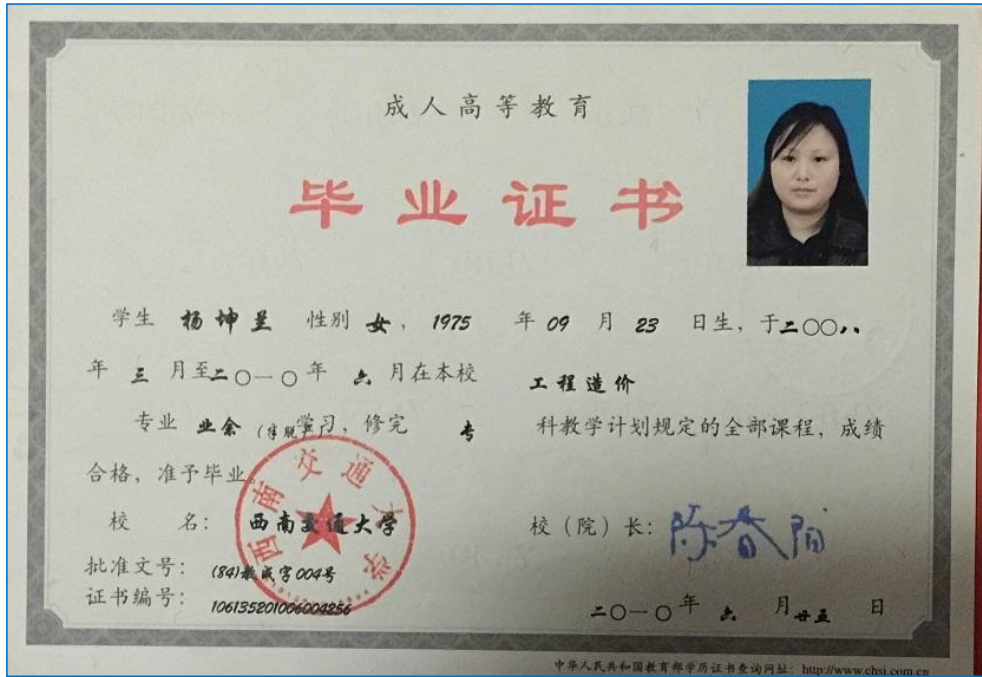 成人高等教育
毕业证书
学生 杨坤兰 性别 女，1975 年 09 月 23 日生，于二〇〇八
年 三 月至二〇一〇年 六 月在本校 工程造价
专业 业余（半脱产）学习，修完 专 科教学计划规定的全部课程，成绩
合格，准予毕业。
校 名： 西南交通大学 校（院）长： 陈春阳
批准文号： (84)教成字004号
证书编号： 106135201006004256
二〇一〇年 六 月 廿五 日
西南交通大学
中华人民共和国教育部学历证书查询网址：http://www.chsi.com.cn